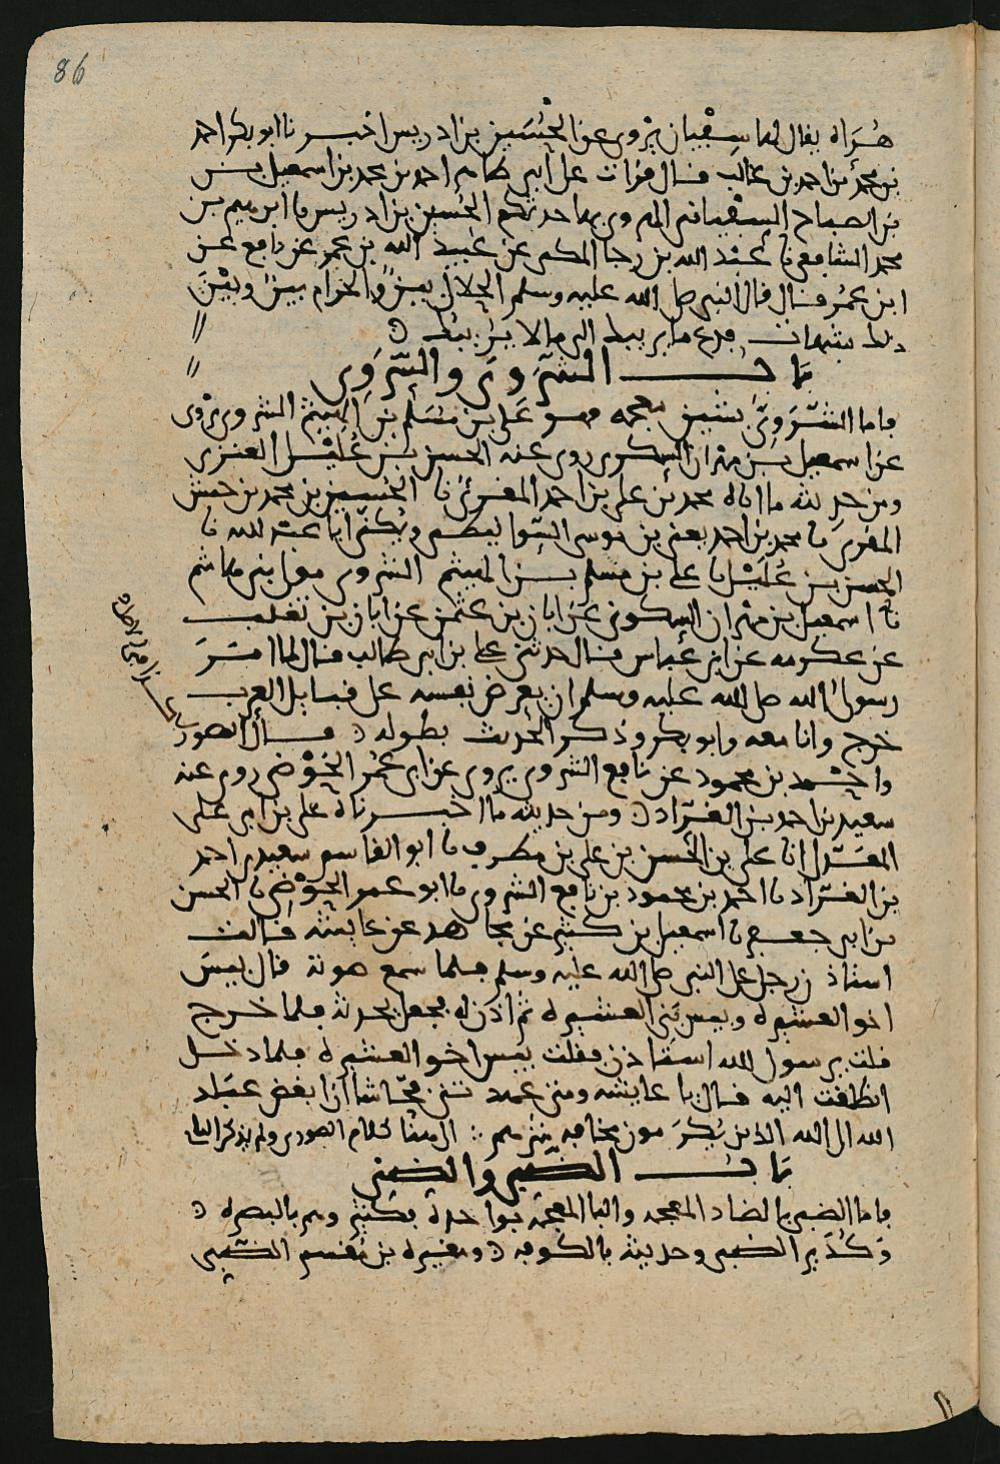 86
هراه يقال لها سيفيان يروي عن الحسين بن ادريس اخبرنا ابو بكر احمد
بن محمد بن احمد بن غالب قال قرات على ابي حاتم احمد بن محمد بن اسمعيل بن
بن الصباح السيفياني الهروي بها حدثكم الحسين بن ادريس نا ابرهيم بن
محمد الشافعي نا عبد الله بن رجا المكي عن عبيد الله بن عمر عن نافع عن
ابن عمر قال قال النبي صلى الله عليه وسلم الحلال بين والحرام بين وبين
ذلك شبهات فدع ما يريبك الى ما لا يريبك
باب الشروي والسروي
فاما الشروي بشين معجمه فهو علي بن مسلم بن الهيثم الشروي يروي
عن اسمعيل بن مهران السكوني روى عنه الحسن بن عليل العنزي
ومن حديثه ما اناه محمد بن علي بن احمد المقرئ نا الحسين بن محمد بن حبش
المقرئ نا محمد بن احمد يعني بن موسى السوانيطي ويكنى ابا عبد الله نا
الحسن بن عليل نا علي بن مسلم بن الهيثم الشروي مولى بني هاشم
نا اسمعيل بن مهران السكوني عن ابان بن عثمن عن ابان بن تغلب
عن عكرمه عن ابن عباس قال حدثني علي بن ابي طالب قال لما امر
رسول الله صلى الله عليه وسلم ان يعرض نفسه على قبايل العرب
خرج وانا معه وابو بكر وذكر الحديث بطوله قال الصوري
واحمد بن محمود بن نافع الشروي يروي عن ابي عمر الحوضي روى عنه
سعيد بن احمد بن العراد ومن حديثه ما اخبرناه علي بن ابي علي
المعدل انا علي بن الحسن بن علي بن مطرف نا ابو القاسم سعيد بن احمد
بن العراد نا احمد بن محمود بن نافع الشروي نا ابو عمر الحوضي نا الحسن
بن ابي جعفر نا اسمعيل بن كثير عن مجاهد عن عايشه قالت
استاذن رجل على النبي صلى الله عليه وسلم فلما سمع صوته قال بيس
اخو العشيره وبيس بني العشيره ثم اذن له فجعل يحدثه فلما خرج
قلت يرسول الله استاذن فقلت بيس اخو العشيره فلما دخل
الطفت اليه فقال يا عايشه ومتى عهدتني فحاشا ان ابغض عباد
الله الى الله الذين يكرمون مخافه شرهم الى هنا كلام الصوري ولم يذكر الثاني
باب الضبي والضني
فاما الضبي بالضاد المعجمه والبا المعجمه بواحدة فكثير وهم بالبصره
وكدير الضبي وحديثه بالكوفه ومغيره بن مقسم الضبي